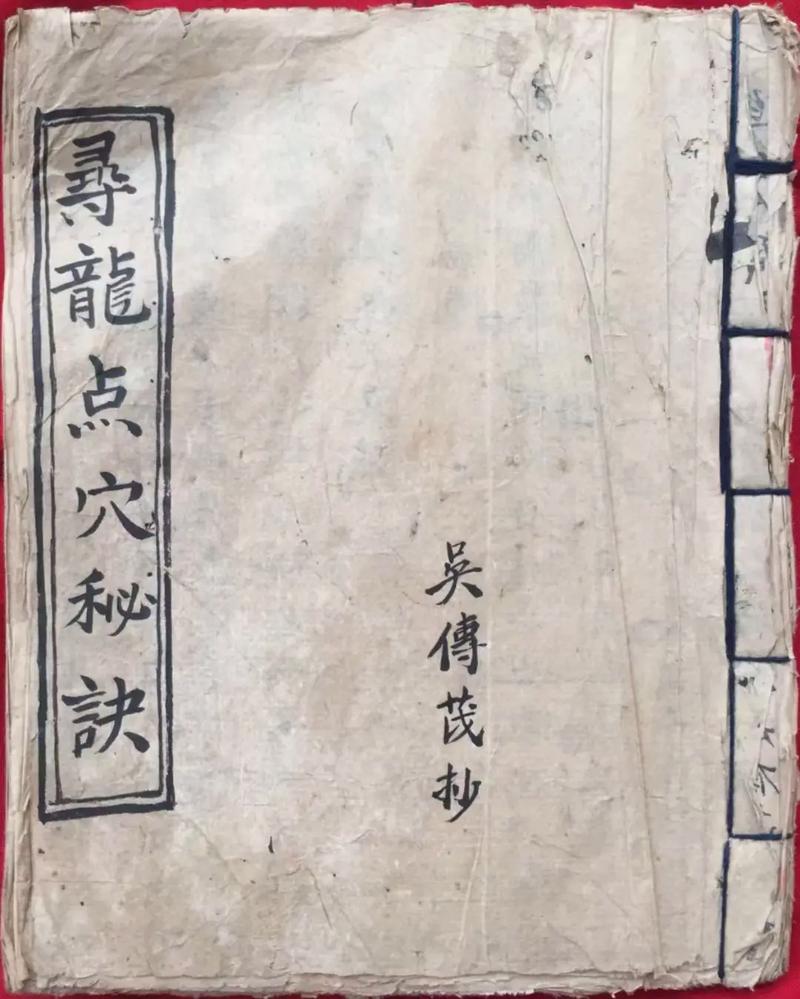 尋龍点穴秘訣
吳傳茂抄